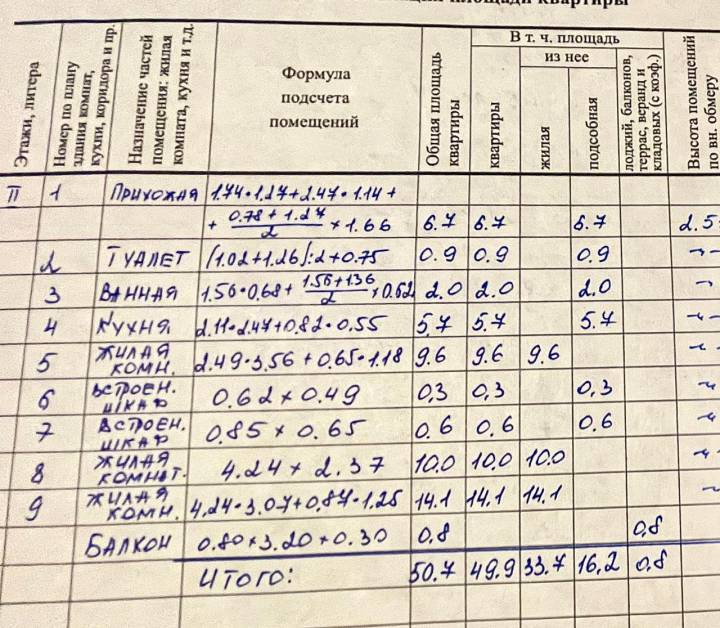 Этажи, литера
Номер по плану здания комнат, кухни, коридора и пр.
Назначение частей помещения: жилая комната, кухня и т.д.
Формула подсчета помещений
Общая площадь квартиры
В т. ч. площадь
из нее
квартиры
жилая
подсобная
лоджий, балконов, террас, веранд и кладовых (с коэф.)
Высота помещений по вн. обмеру
II 1 ПРИХОЖАЯ 1.74·1.27+2.47·1.14+
+ (0.78+1.27)/2 ×1.66 6.7 6.7 6.7 2.5
2 ТУАЛЕТ (1.02+1.26):2+0.75 0.9 0.9 0.9 -"-
3 ВАННАЯ 1.56·0.68+ (1.56+1.36)/2 ×0.62 2.0 2.0 2.0 -"-
4 КУХНЯ 2.11·2.47+0.82·0.55 5.7 5.7 5.7 -"-
5 ЖИЛАЯ КОМН. 2.49·3.56+0.65·1.18 9.6 9.6 9.6 -"-
6 ВСТРОЕН. ШКАФ 0.62×0.49 0,3 0,3 0,3 -"-
7 ВСТРОЕН. ШКАФ 0.85×0.65 0.6 0.6 0.6 -"-
8 ЖИЛАЯ КОМНАТ. 4.24×2.37 10.0 10.0 10.0 -"-
9 ЖИЛАЯ КОМН. 4.24·3.07+0.87·1.25 14.1 14.1 14.1 -"-
БАЛКОН 0.80×3.20×0.30 0.8 0.8
ИТОГО: 50.7 49.9 33.7 16,2 0.8